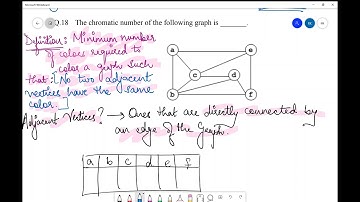 Q.18 The chromatic number of the following graph is ______.
Definition: Minimum number
of colors required to
color a graph such
that: [No two adjacent
vertices have the same
color.]
a
e
c
d
b
f
Adjacent Vertices? → Ones that are directly connected by
an edge of the Graph.
a b c d e f